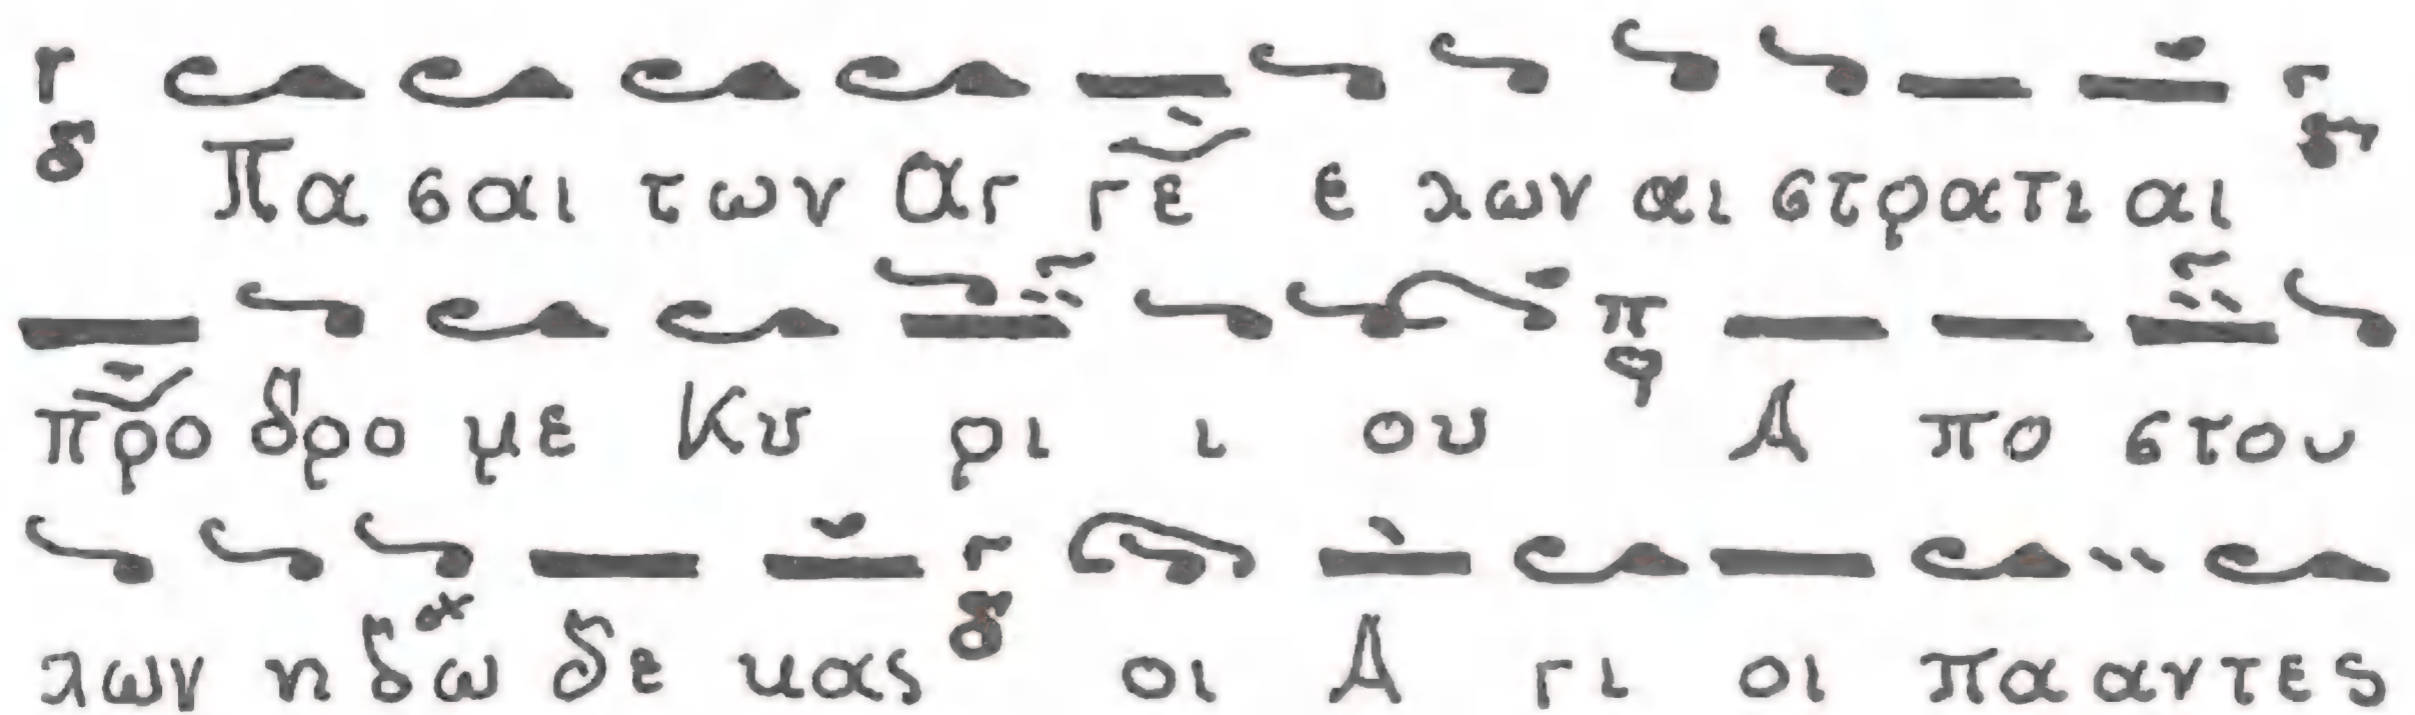 Πα σαι των Αγ γε ε λων αι στρατι αι
προ δρο με Κυ ρι ι ου Α πο στου
λων η δω δε κας οι Α γι οι πα αντες